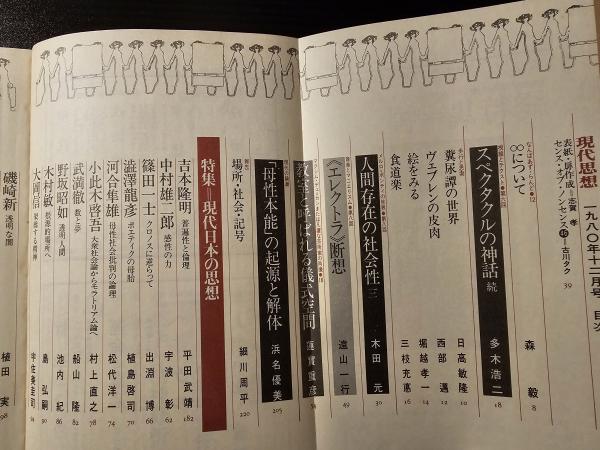 現代思想 一九八〇年十二月号 目次
表紙・扉作成＝志賀 孝
センス・オブ・ノンセンス⑫＝古川タク 39
∞について 森 毅 8
スペクタクルの神話 続 多木浩二 18
糞尿譚の世界 日高敏隆 10
ヴェブレンの皮肉 西部 邁 12
絵をみる 堀越孝一 14
食道楽 三枝充悳 16
人間存在の社会性 三 木田 元 30
《エレクトラ》断想 遠山一行 49
教室と呼ばれる儀式空間 蓮實重彦
「母性本能」の起源と解体 浜名優美 205
場所・社会・記号 細川周平 220
特集＝現代日本の思想
吉本隆明 普遍性と倫理 平田武靖 182
中村雄二郎 感性の力 宇波 彰 62
篠田一士 クロノスに逆らって 出淵 博 66
澁澤龍彦 ポエティクの母胎 植島啓司 70
河合隼雄 母性社会批判の論理 松代洋一 74
小此木啓吾 大衆社会論からモラトリアム論へ 村上直之 78
武満徹 数と夢 船山 隆 82
野坂昭如 透明人間 池内 紀 86
木村敏 根源的場所へ 島 弘嗣 90
大岡信 架橋する精神 宇佐美圭司 94
磯崎新 透明な闇 植田 実 98